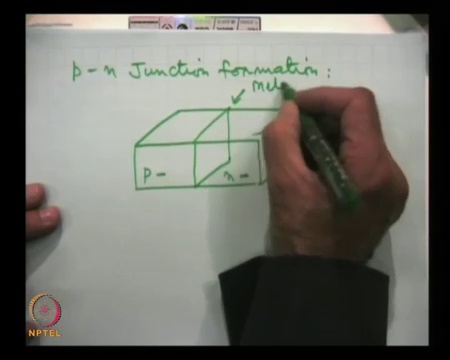 p-n Junction formation:
p-
n-
NPTEL